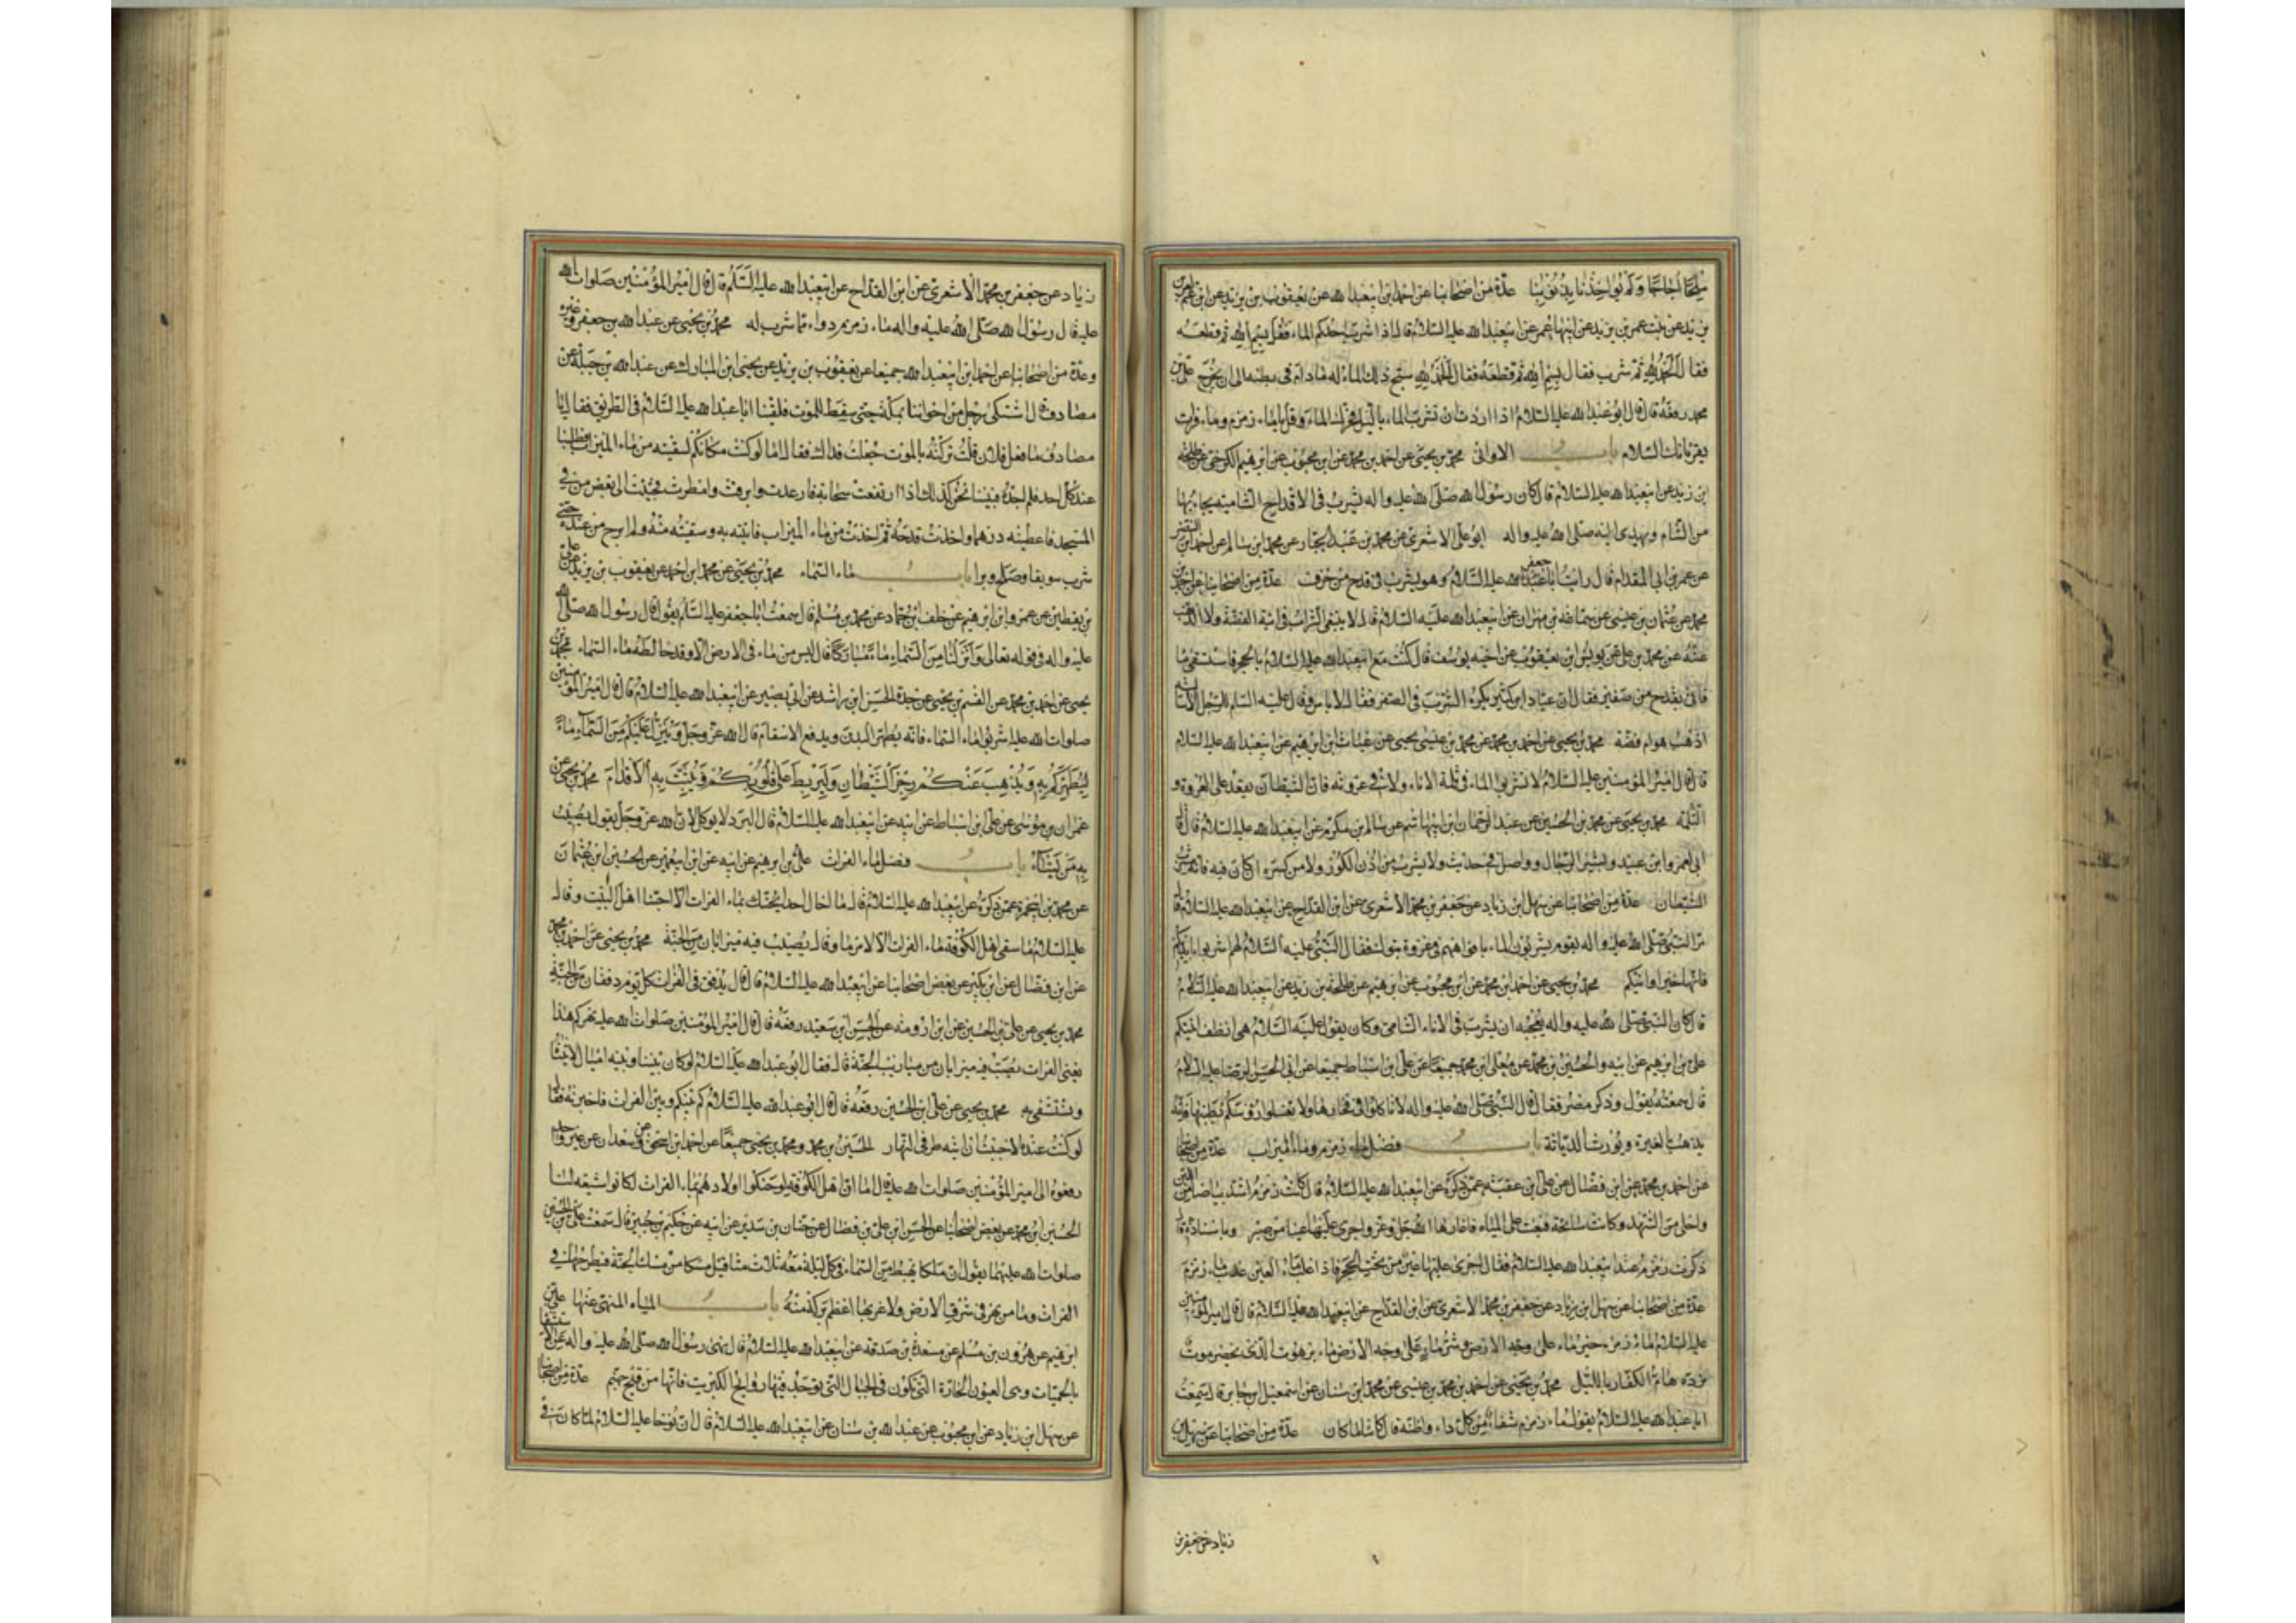 ملحا اجاجا ولم يؤاخذنا بذنوبنا عدة من اصحابنا عن احمد بن ابيعبدالله عن يعقوب بن يزيد عن ابن عم لعمر
بن يزيد عن بنت عمر بن يزيد عن ابيها عمر عن ابيعبدالله عليه السلام قال اذا شرب احدكم الماء فقال بسم الله ثم قطعه
فقال الحمد لله ثم شرب فقال بسم الله ثم قطعه فقال الحمد لله سبح ذلك الماء له مادام فى بطنه الى ان يخرج على بن
محمد رفعه قال قال ابو عبدالله عليه السلام اذا اردت ان تشرب الماء بالليل فحرك الماء وقل يا ماء زمزم وماء فرات
يقرئانك السلام باب الاوانى محمد بن يحيى عن احمد بن محمد عن ابن محبوب عن ابرهيم الكرخى عن طلحة
ابن زيد عن ابيعبدالله عليه السلام قال كان رسول الله صلى الله عليه واله يشرب فى الاقداح الشامية يجاء بها
من الشام ويهدى اليه صلى الله عليه واله ابو على الاشعرى عن محمد بن عبد الجبار عن محمد ابن سالم عن احمد بن النضر
عن عمرو بن ابى المقدام قال رايت ابا جعفر عليه السلام وهو يشرب فى قدح من خزف عدة من اصحابنا عن احمد بن
محمد عن عثمان بن عيسى عن سماعة بن مهران عن ابيعبدالله عليه السلام قال لا ينبغى الشرب فى انية الفضة ولا الذهب
عنه عن محمد بن على عن يونس ابن يعقوب عن اخيه يوسف قال كنت مع ابيعبدالله عليه السلام بالحجر فاستسقى ماء
فاتى بقدح من صفر فقال ان عباد ابن كثير يكره الشرب فى الصفر فقال لا باس وقال عليه السلم للرجل الا سالته
اذهب هو ام فضة محمد بن يحيى عن احمد بن محمد عن محمد بن عيسى يحيى عن غياث ابن ابرهيم عن ابيعبدالله عليه السلام
قال قال امير المؤمنين عليه السلام لا تشربوا الماء فى ثلمة الاناء ولا فى عروته فان الشيطان يقعد على العروة و
الثلمة محمد بن يحيى عن محمد بن الحسين عن عبد الرحمان ابن ابيهاشم عن سالم بن مكرم عن ابيعبدالله عليه السلام قال قال
ابى لعمرو ابن عبيد وبشير الرحال وواصل فى حديث ولا يشرب من اذن الكوز ولا من كسره ان كان فيه فانه مشرب
الشيطان عدة من اصحابنا عن سهل ابن زياد عن جعفر بن محمد الاشعرى عن ابن القداح عن ابيعبدالله عليه السلام قال
مر النبى صلى الله عليه واله بقوم يشربون الماء بافواههم فى غزوة تبوك فقال النبى عليه السلام لهم اشربوا بايديكم
فانها خير اوانيكم محمد بن يحيى عن احمد ابن محمد عن ابن محبوب عن ابرهيم عن طلحة بن زيد عن ابيعبدالله عليه السلام
قال كان النبى صلى الله عليه واله يعجبه ان يشرب فى الاناء الشامى وكان يقول عليه السلام هى انظف انيتكم
على بن ابرهيم عن ابيه والحسين بن محمد عن معلى ابن محمد جميعا عن على ابن اسباط جميعا عن ابى الحسن الرضا عليه السلام
قال سمعته يقول وذكر مصر فقال قال النبى صلى الله عليه واله لا تاكلوا فى فخارها ولا تغسلوا رؤسكم بطينها فانه
يذهب بالغيرة ويورث الدياثة باب فضل ماء زمزم وماء الميزاب عدة من اصحابنا
عن احمد بن محمد عن ابن فضال عن على ابن عقبة عمن ذكره عن ابيعبدالله عليه السلام قال كانت زمزم اشد بياضا من اللبن
واحلى من الشهد وكانت سائحة فبغت على المياه فاغارها الله جل وعز واجرى عليها عينا من صبر وباسناده قال
ذكرت زمزم عند ابيعبدالله عليه السلام فقال اجرى عليها عين من تحت الحجر فاذا غلب ماء العين عذب ماء زمزم
عدة من اصحابنا عن سهل ابن زياد عن جعفر بن محمد الاشعرى عن ابن القداح عن ابيعبدالله عليه السلام قال قال امير المؤمنين
عليه السلام ماء زمزم خير ماء على وجه الارض وشر ماء على وجه الارض ماء برهوت الذى بحضرموت
ترده هام الكفار بالليل محمد بن يحيى عن احمد بن محمد بن عيسى عن محمد ابن سنان عن اسمعيل ابن جابر قال سمعت
ابا عبدالله عليه السلام يقول ماء زمزم شفاء من كل داء واظنه قال كائنا ما كان عدة من اصحابنا عن سهل ابن
زياد عن جعفر بن
زياد عن جعفر بن محمد الاشعرى عن ابن القداح عن ابيعبدالله عليه السلم قال قال امير المؤمنين صلوات الله
عليه قال رسول الله صلى الله عليه واله ماء زمزم دواء مما شرب له محمد بن يحيى عن عبدالله بن جعفر وغيره
وعدة من اصحابنا عن احمد ابن ابيعبدالله جميعا عن يعقوب بن يزيد عن يحيى ابن المبارك عن عبدالله بن جبلة عن
مصادف قال اشتكى رجل من اخواننا بمكة حتى سقط للموت فلقينا ابا عبدالله عليه السلام فى الطريق فقال يا
مصادف ما فعل فلان قلت تركته بالموت جعلت فداك فقال اما لو كنت مكانكم لسقيته من ماء الميزاب فطلبنا
عند كل احد فلم نجده فبينا نحن كذلك اذ ارتفعت سحابة فارعدت وابرقت وامطرت فجئت الى بعض من فى
المسجد فاعطيته درهما واخذت قدحه ثم اخذت من ماء الميزاب فاتيته به وسقيته منه ولم ابرح من عنده حتى
شرب سويقا وصلح وبرا باب ماء السماء محمد بن يحيى عن محمد ابن احمد عن يعقوب بن يزيد عن على
بن يقطين عن عمرو ابن ابرهيم عن خلف ابن حماد عن محمد بن مسلم قال سمعت ابا جعفر عليه السلم يقول قال رسول الله صلى الله
عليه واله فى قوله تعالى وانزلنا من السماء ماء مباركا قال ليس من ماء فى الارض الا وقد خالطه ماء السماء محمد بن
يحيى عن احمد بن محمد عن القسم بن يحيى عن جده الحسن ابن راشد عن ابى بصير عن ابيعبدالله عليه السلام قال قال امير المؤمنين
صلوات الله عليه اشربوا ماء السماء فانه يطهر البدن ويدفع الاسقام قال الله عز وجل وينزل عليكم من السماء ماء
ليطهركم به ويذهب عنكم رجز الشيطان وليربط على قلوبكم ويثبت به الاقدام محمد بن يحيى عن
عمران بن موسى عن على ابن اسباط عن ابيه عن ابيعبدالله عليه السلام قال البرد لا يوكل لان الله عز وجل يقول يصيب
به من يشاء باب فضل ماء الفرات على بن ابرهيم عن ابيه عن ابن ابيعمير عن الحسين ابن عثمان
عن محمد بن ابيحمزة عمن ذكره عن ابيعبدالله عليه السلام قال ما اخال احدا يحنك بماء الفرات الا احبنا اهل البيت وقال
عليه السلام ما سقى اهل الكوفة ماء الفرات الا لامر ما وقال يصب فيه ميزابان من الجنة محمد بن يحيى عن احمد بن محمد
عن ابن فضال عن ابن بكير عن بعض اصحابنا عن ابيعبدالله عليه السلام قال قال يدفق فى الفرات كل يوم دفقات من الجنة
محمد بن يحيى عن على بن الحسين عن ابن ارومة عن الحسين ابن سعيد رفعه قال قال امير المؤمنين صلوات الله عليه نهركم هذا
يعنى الفرات يصب فيه ميزابان من ميازيب الجنة قال فقال ابو عبدالله عليه السلام لو كان بيننا وبينه اميال لاتيناه
ونستشفى به محمد بن يحيى عن على ابن الحسين رفعه قال قال ابو عبدالله عليه السلام كم بينكم وبين الفرات فاخبرته فقال
لو كنت عنده لاحببت ان اتيه طرفى النهار الحسين بن محمد ومحمد بن يحيى جميعا عن احمد ابن اسحق عن سعدان عن غير واحد
رفعوه الى امير المؤمنين صلوات الله عليه قال اما ان اهل الكوفة لو حنكوا اولادهم بماء الفرات لكانوا شيعة لنا
الحسين ابن محمد عن بعض اصحابنا عن الحسن ابن على بن فضال عن حنان بن سدير عن ابيه عن حكيم بن جبير قال سمعت على بن الحسين
صلوات الله عليهما يقول ان ملكا يهبط من السماء فى كل ليلة معه ثلاث مثاقيل مسكا من مسك الجنة فيطرحها فى
الفرات وما من نهر فى شرق الارض ولا غربها اعظم بركة منه باب المياه المنهى عنها على بن
ابرهيم عن هرون بن مسلم عن مسعدة بن صدقة عن ابيعبدالله عليه السلام قال نهى رسول الله صلى الله عليه واله عن الاستشفاء
بالحميات وهى العيون الحارة التى تكون فى الجبال التى توجد فيها روائح الكبريت فانها من فيح جهنم عدة من اصحابنا
عن سهل ابن زياد عن ابن محبوب عن عبدالله بن سنان عن ابيعبدالله عليه السلام قال ان نوحا عليه السلام لما كان فى